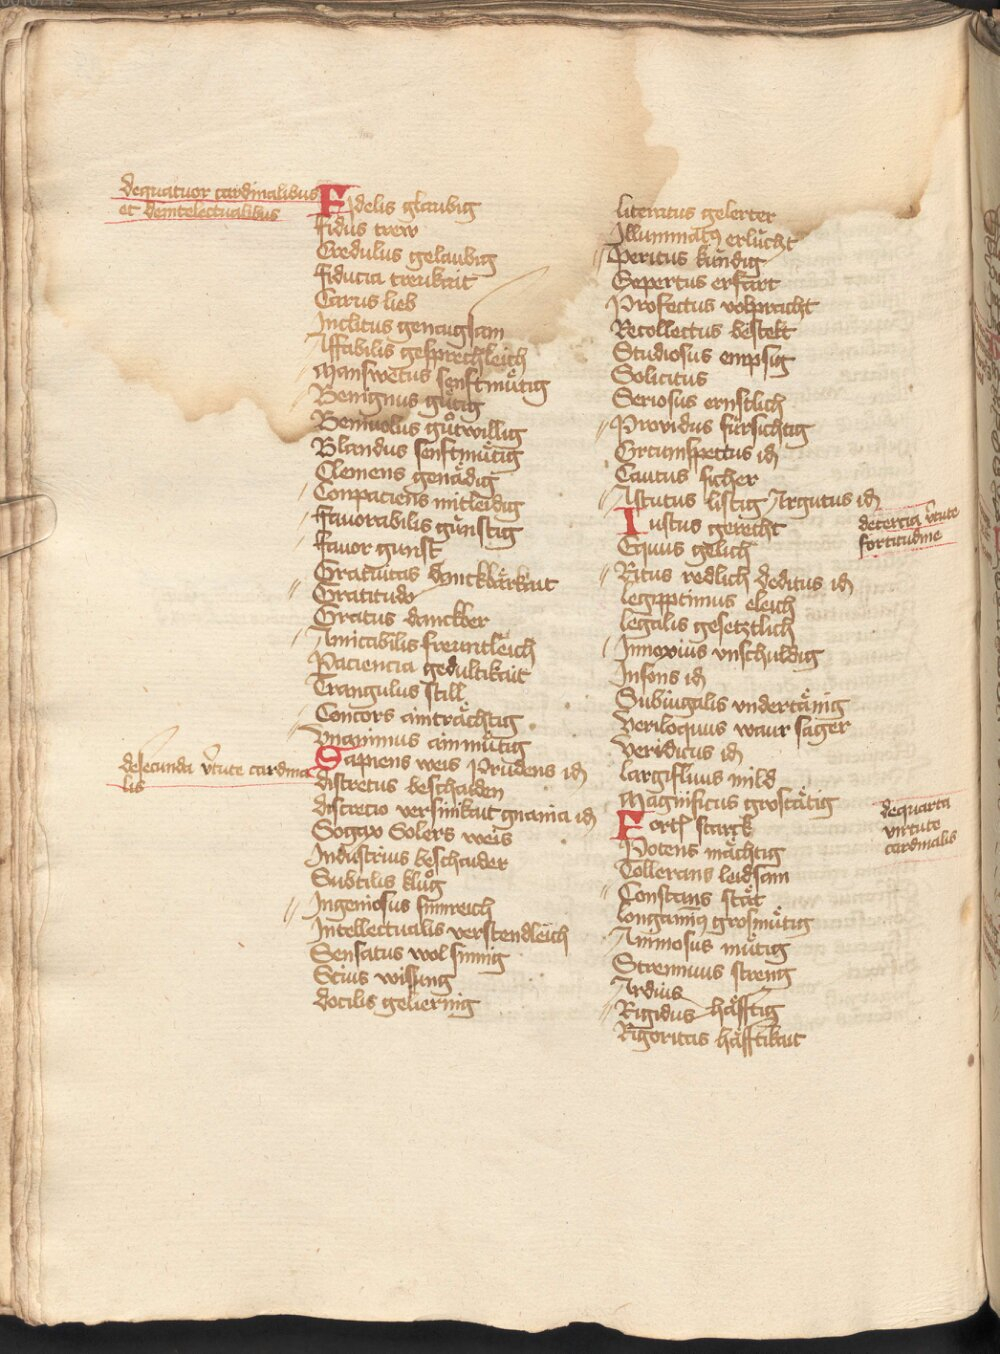 dequatuor cardinalibus
et deintelectualibus
Fidelis glaubig
fidus trew
Credulus gelaubig
fiducia treukait
Carus lieb
Inclitus genaigsam
Affabilis gesprechleich
Manswetus senftmůtig
Benignus gůtig
Beniuolus gůtwillig
Blandus senftmůtig
Clemens genädig
Conpaciens mitleidig
fauorabilis günstig
fauor gunst
Gratuitas dynckbärkait
Gratitudo
Gratus danckber
Amicabilis freuntleich
Paciencia gedultikait
Tranqulus still
Concors ainträchtig
Vnanimus ainmůtig
desecunda v̄tute cardina
lis
Sapiens weis Prudens id
discretus beschaiden
discrecio versinikait gnauia id
Sogax Solers weis
Industrius beschaider
Subtilis klůg
Ingeniosus sinnreich
Intellectualis verstendleich
Sensatus wol sinnig
Scius wissung
docilis geliernig
literatus gelerter
Illuminatꝰ erlücht
Peritus kündig
Expertus erfart
Profectus volpracht
Recollectus bestelt
Studiosus empsig
Solicitus
Seriosus ernstlich
Prouidus fürsichtig
Circumspectus id
Cautus sicher
Astutus listig Argutus id
Iustus gerecht
detercia v̄tute
fortitudine
Equus gelich
Ritus redlich deditus id
legipptimus eleich
legalis gesetzlich
Innoxius vnschuldig
Insons id
Subiugalis vndertänig
Veriloquus waur sager
Veridicus id
largifluus mild
Magnificus grostätig
dequarta
virtute
cardinalis
Fortis starck
Potens mächtig
Tollerans leidsam
Constans stät
longanimꝰ grosmůtig
Animosus můtig
Strennuus streng
Ardius
Rigidus häfftig
Rigoritas häfftikait